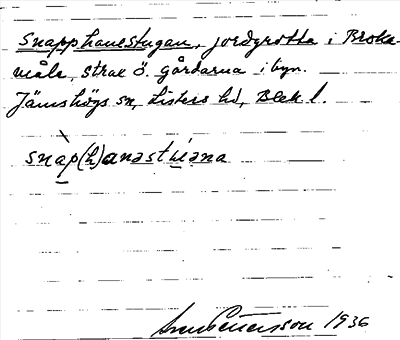 Snapphanestugan, jordgrotta i Broka-
måla, strax ö. gårdarna i byn.
Jämshögs sn, Listers hd, Blek l.
snàp(h)anəstuəna
1936